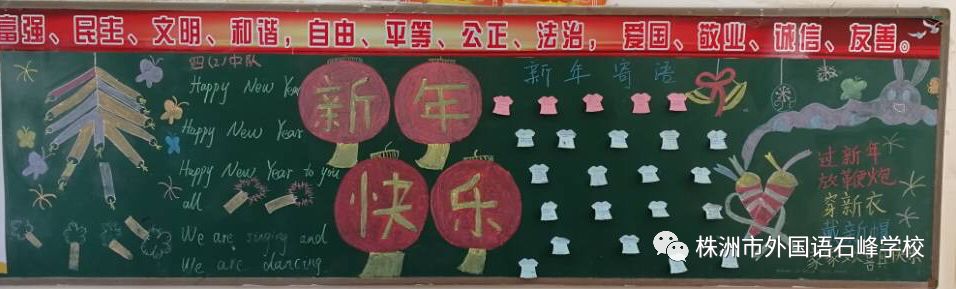 富强、民主、文明、和谐，自由、平等、公正、法治， 爱国、敬业、诚信、友善。
四(2)中队
Happy New Year
Happy New Year
Happy New Year to you
all
We are singing and
We are dancing
新年
快乐
新年寄语
过新年
放鞭炮
穿新衣
戴新帽
株洲市外国语石峰学校